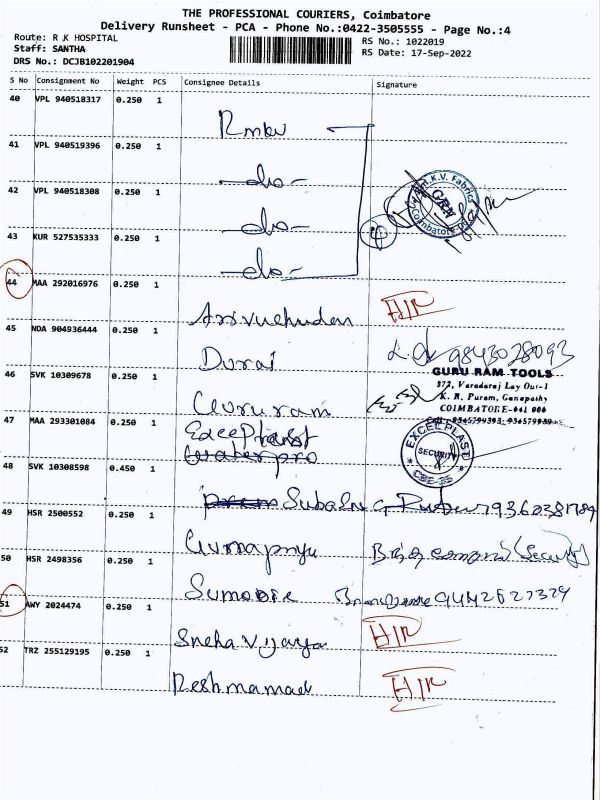 THE PROFESSIONAL COURIERS, Coimbatore
Delivery Runsheet - PCA - Phone No.:0422-3505555 - Page No.:4
Route: R K HOSPITAL
RS No.: 1022019
Staff: SANTHA
RS Date: 17-Sep-2022
DRS No.: DCJB102201904
S No Consignment No Weight PCS Consignee Details Signature
40 VPL 940518317 0.250 1
Rmkv
41 VPL 940519396 0.250 1
-do-
42 VPL 940518308 0.250 1
-do-
43 KUR 527535333 0.250 1
-do-
4
K.V. Fabrics
GRN
Coimbatore
44 MAA 292016976 0.250 1
Arivuchudan H/R
45 NDA 904936444 0.250 1
Durai 9843028093
46 SVK 10309678 0.250 1
Gururam
GURU RAM TOOLS
372, Varadaraj Lay Out-1
K. R. Puram, Ganapathy
COIMBATORE-641 006
47 MAA 293301084 0.250 1
Excel Plast
Waterpro
EXCEL PLAST
SECURITY
CBE-35
48 SVK 10308598 0.450 1
49 HSR 2500552 0.250 1
50 HSR 2498356 0.250 1
51 AWY 2024474 0.250 1
Sneha Vijaya H/R
52 TRZ 255129195 0.250 1
Reshmamad H/R